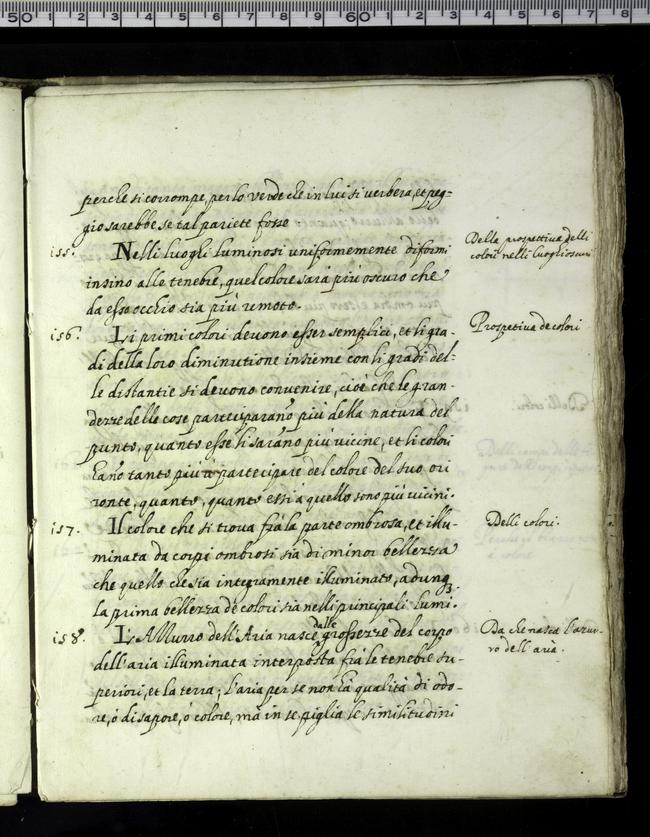 perche si corrompe, per lo verde che in lui si verbera, et peg-
gio sarebbe se tal pariete fosse
155. Nelli luoghi luminosi uniformemente diformi
Della prospectiva delli
colori nelli luoghi oscuri
insino alle tenebre, quel colore sarà più oscuro che
da esso occhio sia più remoto.
156. Li primi colori devono esser semplici, et li gra-
Prospetiva de colori
di della loro diminutione insieme con li gradi del-
le distantie si devono convenire, cioè che le gran-
dezze delle cose parteciparano più della natura del
punto, quanto esse li sarano più vicine, et li colori
hano tanto più a partecipare del colore del suo ori
zonte, quanto, quanto essi a quello sono più vicini.
157. Il colore che si trova frà la parte ombrosa, et illu-
Delli colori.
minata da corpi ombrosi sia di minor bellezza
che quello che sia integramente illuminato, adunq3
la prima bellezza de colori sia nelli principali lumi.
158. L'Allurro dell'Aria nasce dalle grossezze del corpo
Da che nasca l'azur-
ro dell'aria.
dell'aria illuminata interposta frà le tenebre su-
periori, et la terra; l'aria per se non hà qualità di odo-
re, ò di sapore, ò colore, mà in se piglia le similitudini
50 1 2 3 4 5 6 7 8 9 60 1 2 3 4 5 6 7 8